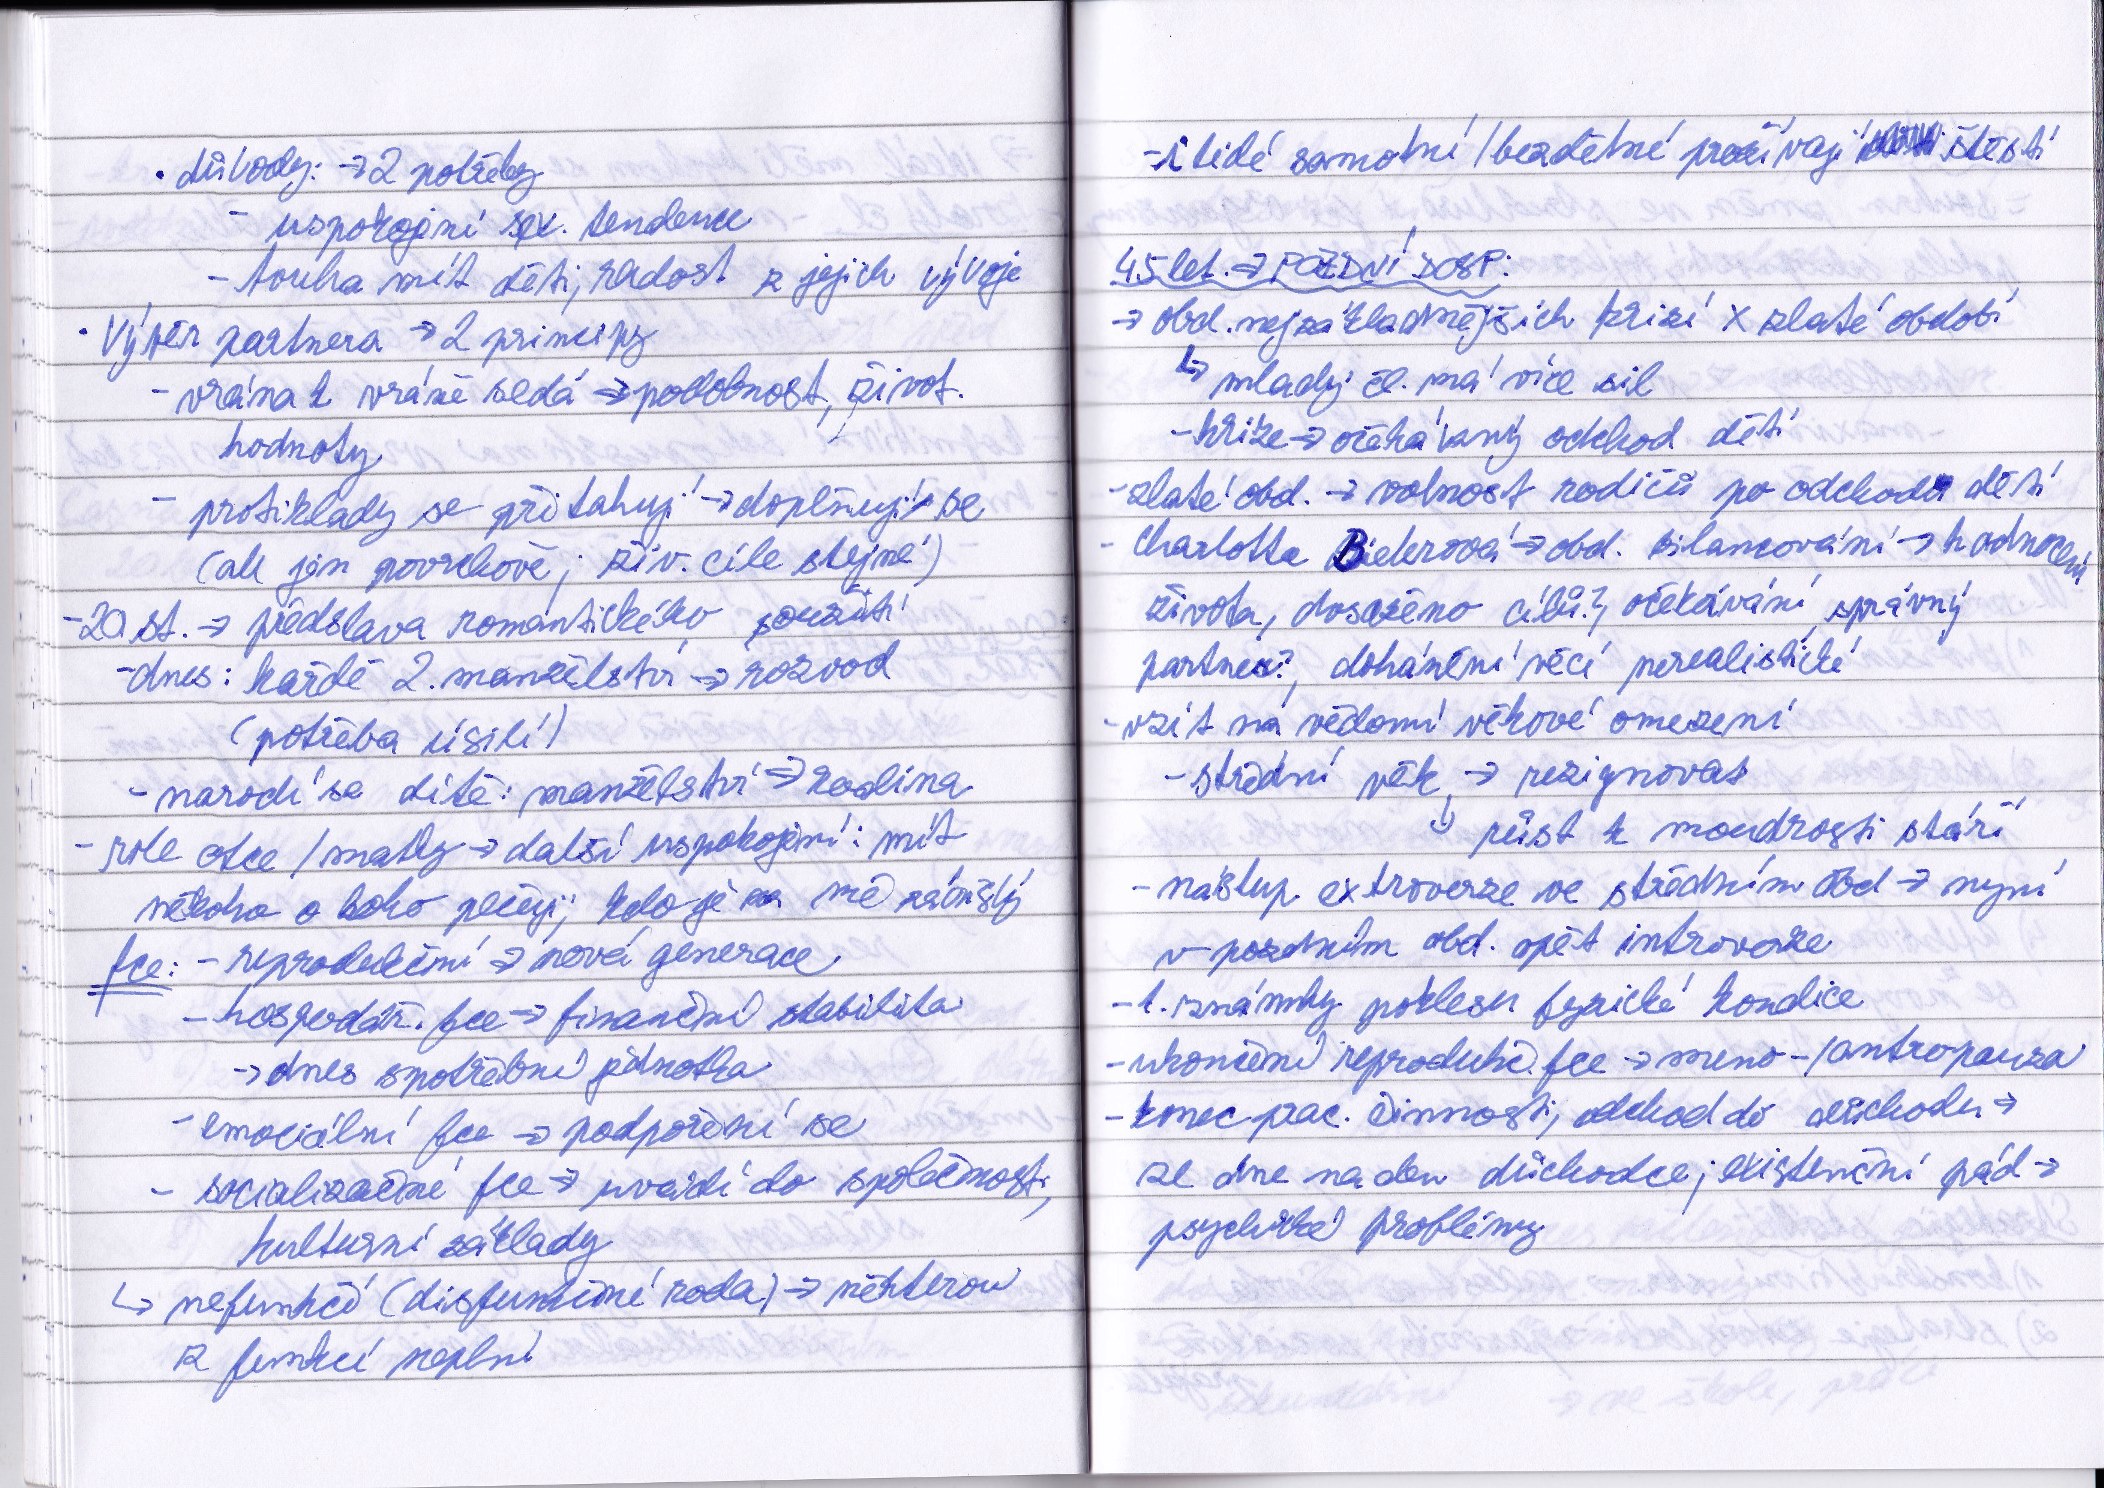 • důvody: → 2 potřeby
- uspokojení sex. tendence
- touha mít děti, radost z jejich vývoje
• Výběr partnera → 2 principy
- vrána k vráně sedá → podobnost, život.
hodnoty
- protiklady se přitahují → doplňují se
(ale jen povrchově; živ. cíle stejné)
- 20. st. → představa romantického soužití
- dnes: každé 2. manželství → rozvod
(potřeba úsilí)
- narodí se dítě: manželství → rodina
- role otce / matky → další uspokojení: mít
někoho o koho pečuji, kdo je na mě závislý
fce: - reprodukční → nová generace
- hospodář. fce → finanční stabilita
→ dnes spotřební jednotka
- emociální fce → podpoření se
- socializační fce → uvádí do společnosti,
kulturní základy
↳ nefunkčí (disfunkční roda) → některou
z funkcí neplní
- i lidé samotní / bezdětné prožívají štěstí
45 let → POZDNÍ DOSP.:
→ obd. nejzákladnějších krizí x zlaté období
↳ mladý čl. má více sil
- krize → očekávaný odchod dětí
- zlaté obd. → volnost rodičů po odchodu dětí
- Charlotta → obd. bilancování → hodnocení
života, dosaženo cílů?, očekávání, správný
partner?, dohánění věcí nerealistické
- vzít na vědomí věkové omezení
- střední věk → rezignovat
↓ růst k moudrosti stáří
- nástup. extroverze ve středním obd → nyní
v pozdním obd. opět introverze
- 1. známky poklesu fyzické kondice
- ukončení reprodukč. fce → meno- / antropauza
- konec prac. činnosti, odchod do důchodu →
ze dne na den důchodce; existenční pád →
psychické problémy